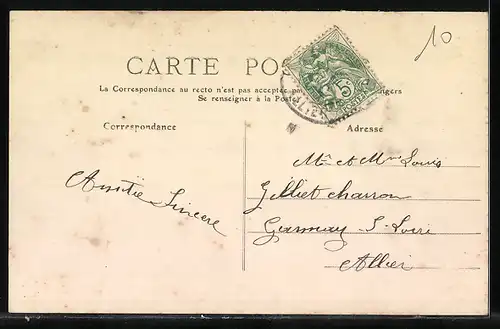 10
CARTE POS
La Correspondance au recto n'est pas acceptée pa ngers
Se renseigner à la Poste
5c
POSTES
Correspondance
Adresse
Amitié Sincère
Mr et Mme Louis
Gilliet charron
Garnay S. Loire
Allier